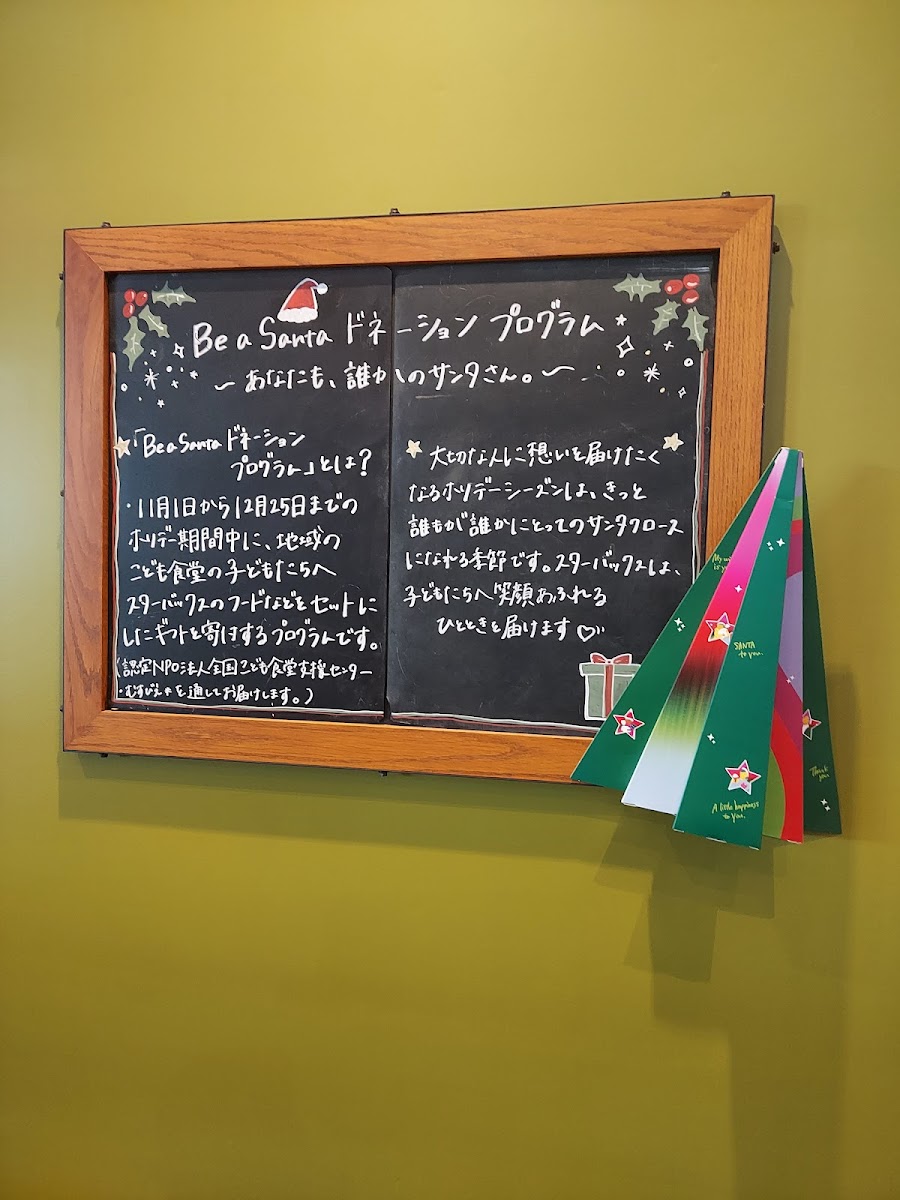 Be a Santa ドネーション プログラム
〜 あなたも、誰かのサンタさん。〜
「Be a Santa ドネーション
プログラム」とは?
・11月1日から12月25日までの
ホリデー期間中に、地域の
こども食堂の子どもたちへ
スターバックスのフードなどをセットに
したギフトを寄付するプログラムです。
(認定NPO法人全国こども食堂支援センター
・むすびえ を通してお届けします。)
大切な人に想いを届けたく
なるホリデーシーズンは、きっと
誰もが誰かにとってのサンタクロース
になれる季節です。スターバックスは、
子どもたちへ笑顔あふれる
ひとときを届けます♡
SANTA
to you.
A little happiness
to you.
Thank
you